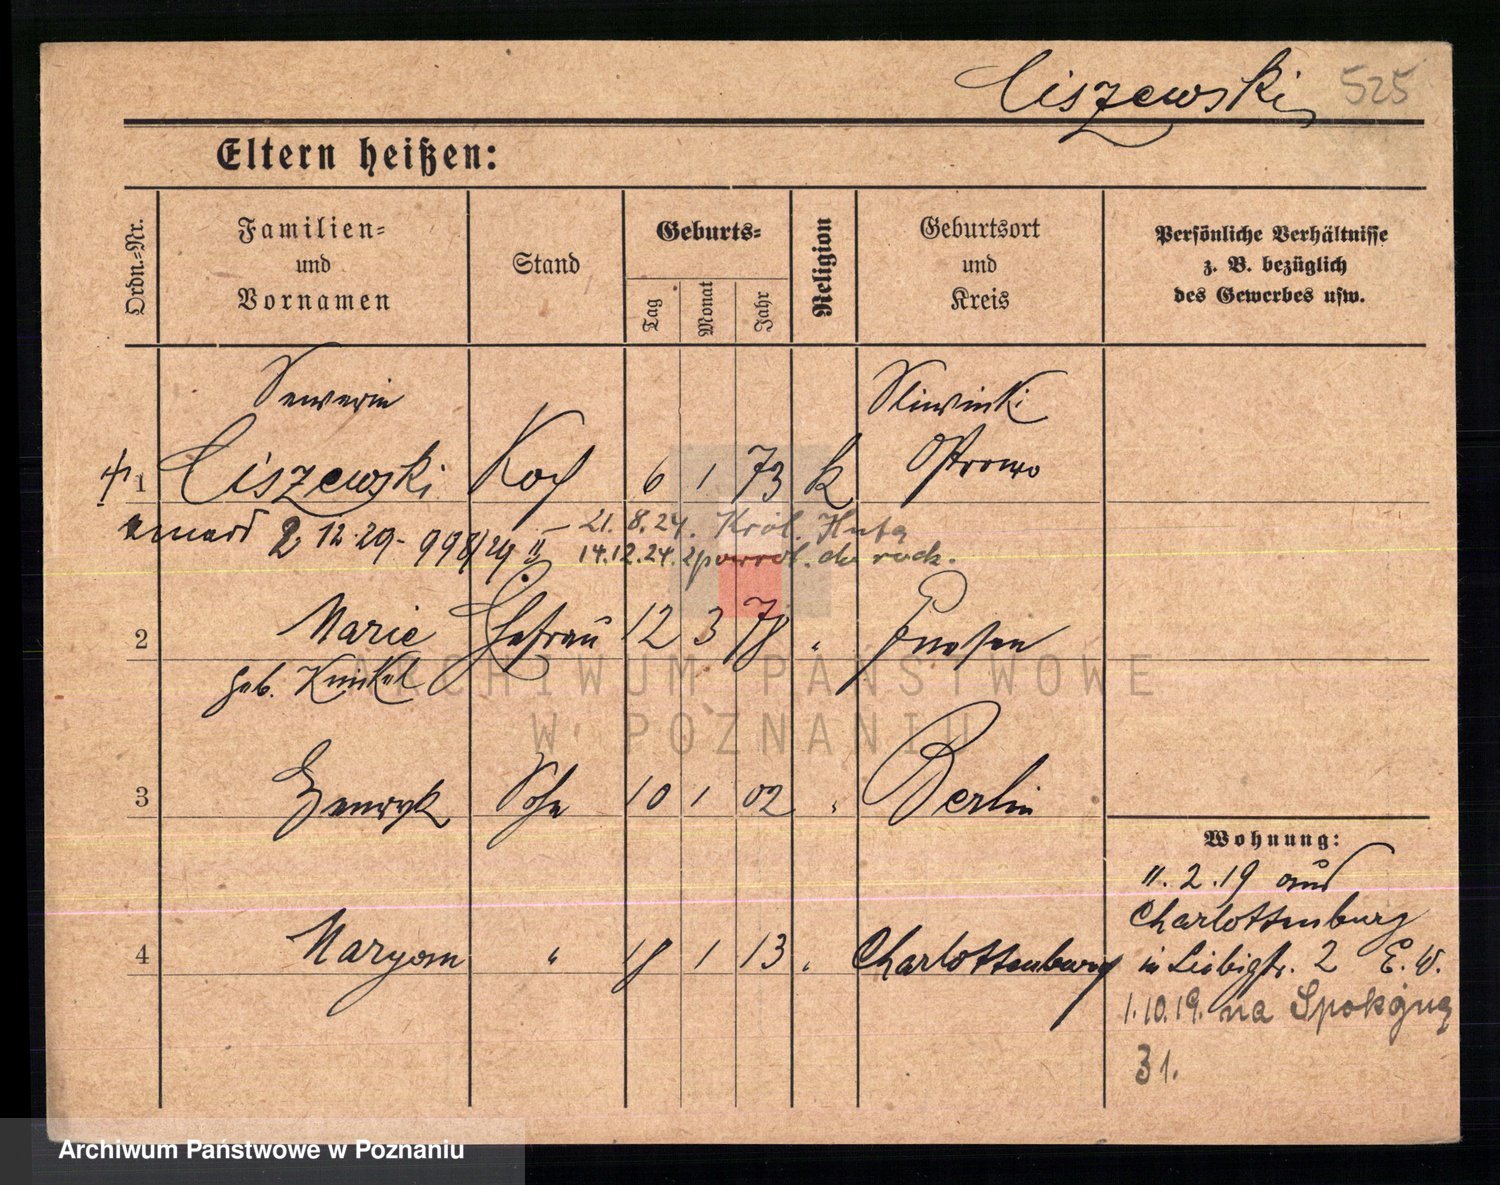 Ciszewski 525
Eltern heißen:
Ordn.-Nr.
Familien-
und
Vornamen
Stand
Geburts-
Tag
Monat
Jahr
Religion
Geburtsort
und
Kreis
Persönliche Verhältnisse
z. B. bezüglich
des Gewerbes usw.
Sewerin Sliwinki
1 Ciszewski Koch 6 1 73 k Ostrowo
umarł 2 12.29 - 998/29 II - 21.8.24. Król. Huta
14.12.24. zpowrot. do rodz.
2 Marie Ehefrau 12 3 78 " Gnesen
geb. Kunkel
3 Henryk Sohn 10 1 02 " Berlin
4 Maryan " 18 1 13 " Charlottenburg
Wohnung:
11.2.19 aus
Charlottenburg
in Liebigstr. 2 E. W.
1.10.19. na Spokojną
31.
ARCHIWUM PAŃSTWOWE
W POZNANIU
Archiwum Państwowe w Poznaniu